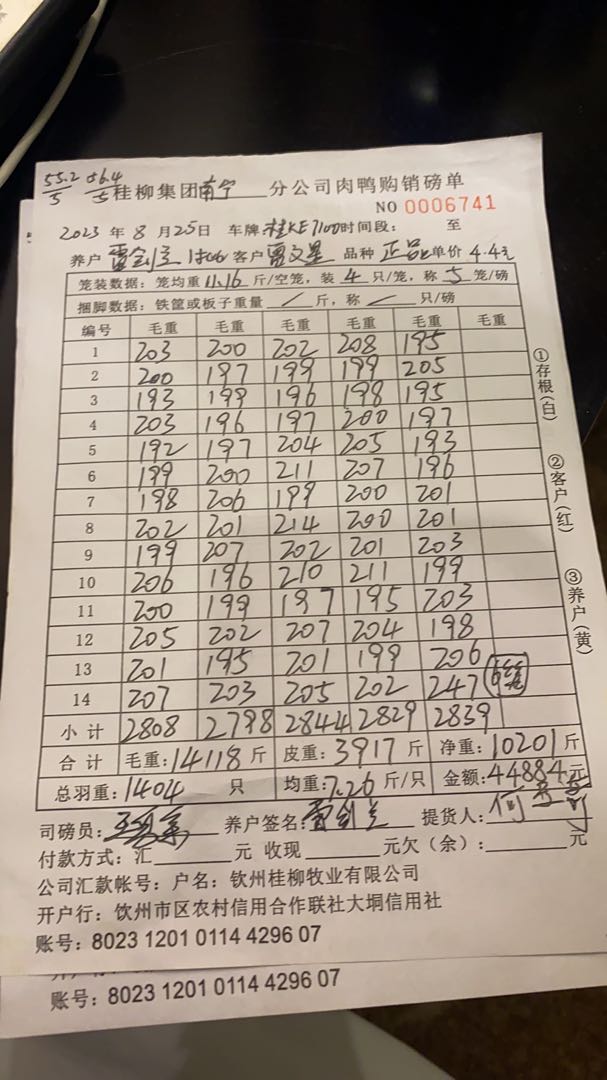 55.2/5 56.4/5
桂柳集团南宁分公司肉鸭购销磅单
NO 0006741
2023 年 8 月 25 日 车牌 桂KE7100 时间段： 至
养户 客户 品种 正品 单价 4.4元
笼装数据：笼均重 11.16 斤/空笼，装 4 只/笼，称 5 笼/磅
捆脚数据：铁筐或板子重量 / 斤，称 / 只/磅
编号 毛重 毛重 毛重 毛重 毛重 毛重
1 203 200 202 208 195
2 200 197 199 199 205
3 193 199 196 198 195
4 203 196 197 200 197
5 192 197 204 205 193
6 199 200 211 207 196
7 198 206 199 200 201
8 202 201 214 200 201
9 199 207 202 201 203
10 206 196 210 211 199
11 200 199 197 195 203
12 205 202 207 204 198
13 201 195 201 199 206
14 207 203 205 202 247 6笼
小计 2808 2798 2844 2829 2839
合计 毛重：14118 斤 皮重：3917 斤 净重：10201 斤
总羽重：1404 只 均重：7.26 斤/只 金额：44884 元
司磅员： 养户签名： 提货人：
付款方式：汇 元 收现 元欠（余）： 元
公司汇款帐号：户名：钦州桂柳牧业有限公司
开户行：饮州市区农村信用合作联社大垌信用社
账号：8023 1201 0114 4296 07
①存根(白)
②客户(红)
③养户(黄)
账号：8023 1201 0114 4296 07